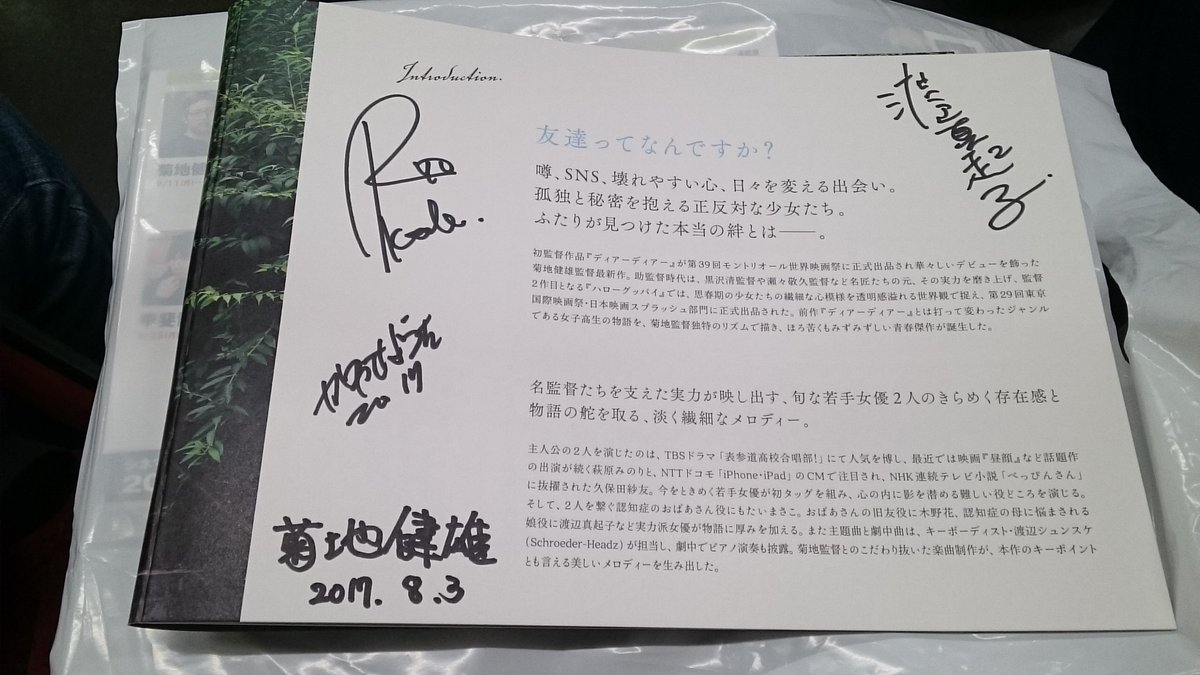 Introduction.
友達ってなんですか?
噂、SNS、壊れやすい心、日々を変える出会い。
孤独と秘密を抱える正反対な少女たち。
ふたりが見つけた本当の絆とは――。
初監督作品『ディアーディアー』が第39回モントリオール世界映画祭に正式出品され華々しいデビューを飾った
菊地健雄監督最新作。助監督時代は、黒沢清監督や瀬々敬久監督など名匠たちの元、その実力を磨き上げ、監督
2作目となる『ハローグッバイ』では、思春期の少女たちの繊細な心模様を透明感溢れる世界観で捉え、第29回東京
国際映画祭・日本映画スプラッシュ部門に正式出品された。前作『ディアーディアー』とは打って変わったジャンル
である女子高生の物語を、菊地監督独特のリズムで描き、ほろ苦くもみずみずしい青春傑作が誕生した。
名監督たちを支えた実力が映し出す、旬な若手女優2人のきらめく存在感と
物語の舵を取る、淡く繊細なメロディー。
主人公の2人を演じたのは、TBSドラマ「表参道高校合唱部!」にて人気を博し、最近では映画『昼顔』など話題作
の出演が続く萩原みのりと、NTTドコモ「iPhone・iPad」のCMで注目され、NHK連続テレビ小説「べっぴんさん」
に抜擢された久保田紗友。今をときめく若手女優が初タッグを組み、心の内に影を潜める難しい役どころを演じる。
そして、2人を繋ぐ認知症のおばあさん役にもたいまさこ。おばあさんの旧友役に木野花、認知症の母に悩まされる
娘役に渡辺真起子など実力派女優が物語に厚みを加える。また主題曲と劇中曲は、キーボーディスト・渡辺シュンスケ
(Schroeder-Headz)が担当し、劇中でピアノ演奏も披露。菊地監督とのこだわり抜いた楽曲制作が、本作のキーポイント
とも言える美しいメロディーを生み出した。
渡辺真起子
2017
菊地健雄
2017. 8.3
菊地健